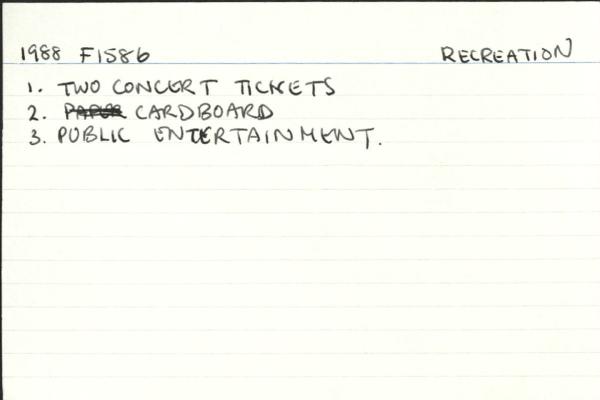 1988 F1586 RECREATION
1. TWO CONCERT TICKETS
2. PAPER CARDBOARD
3. PUBLIC ENTERTAINMENT.